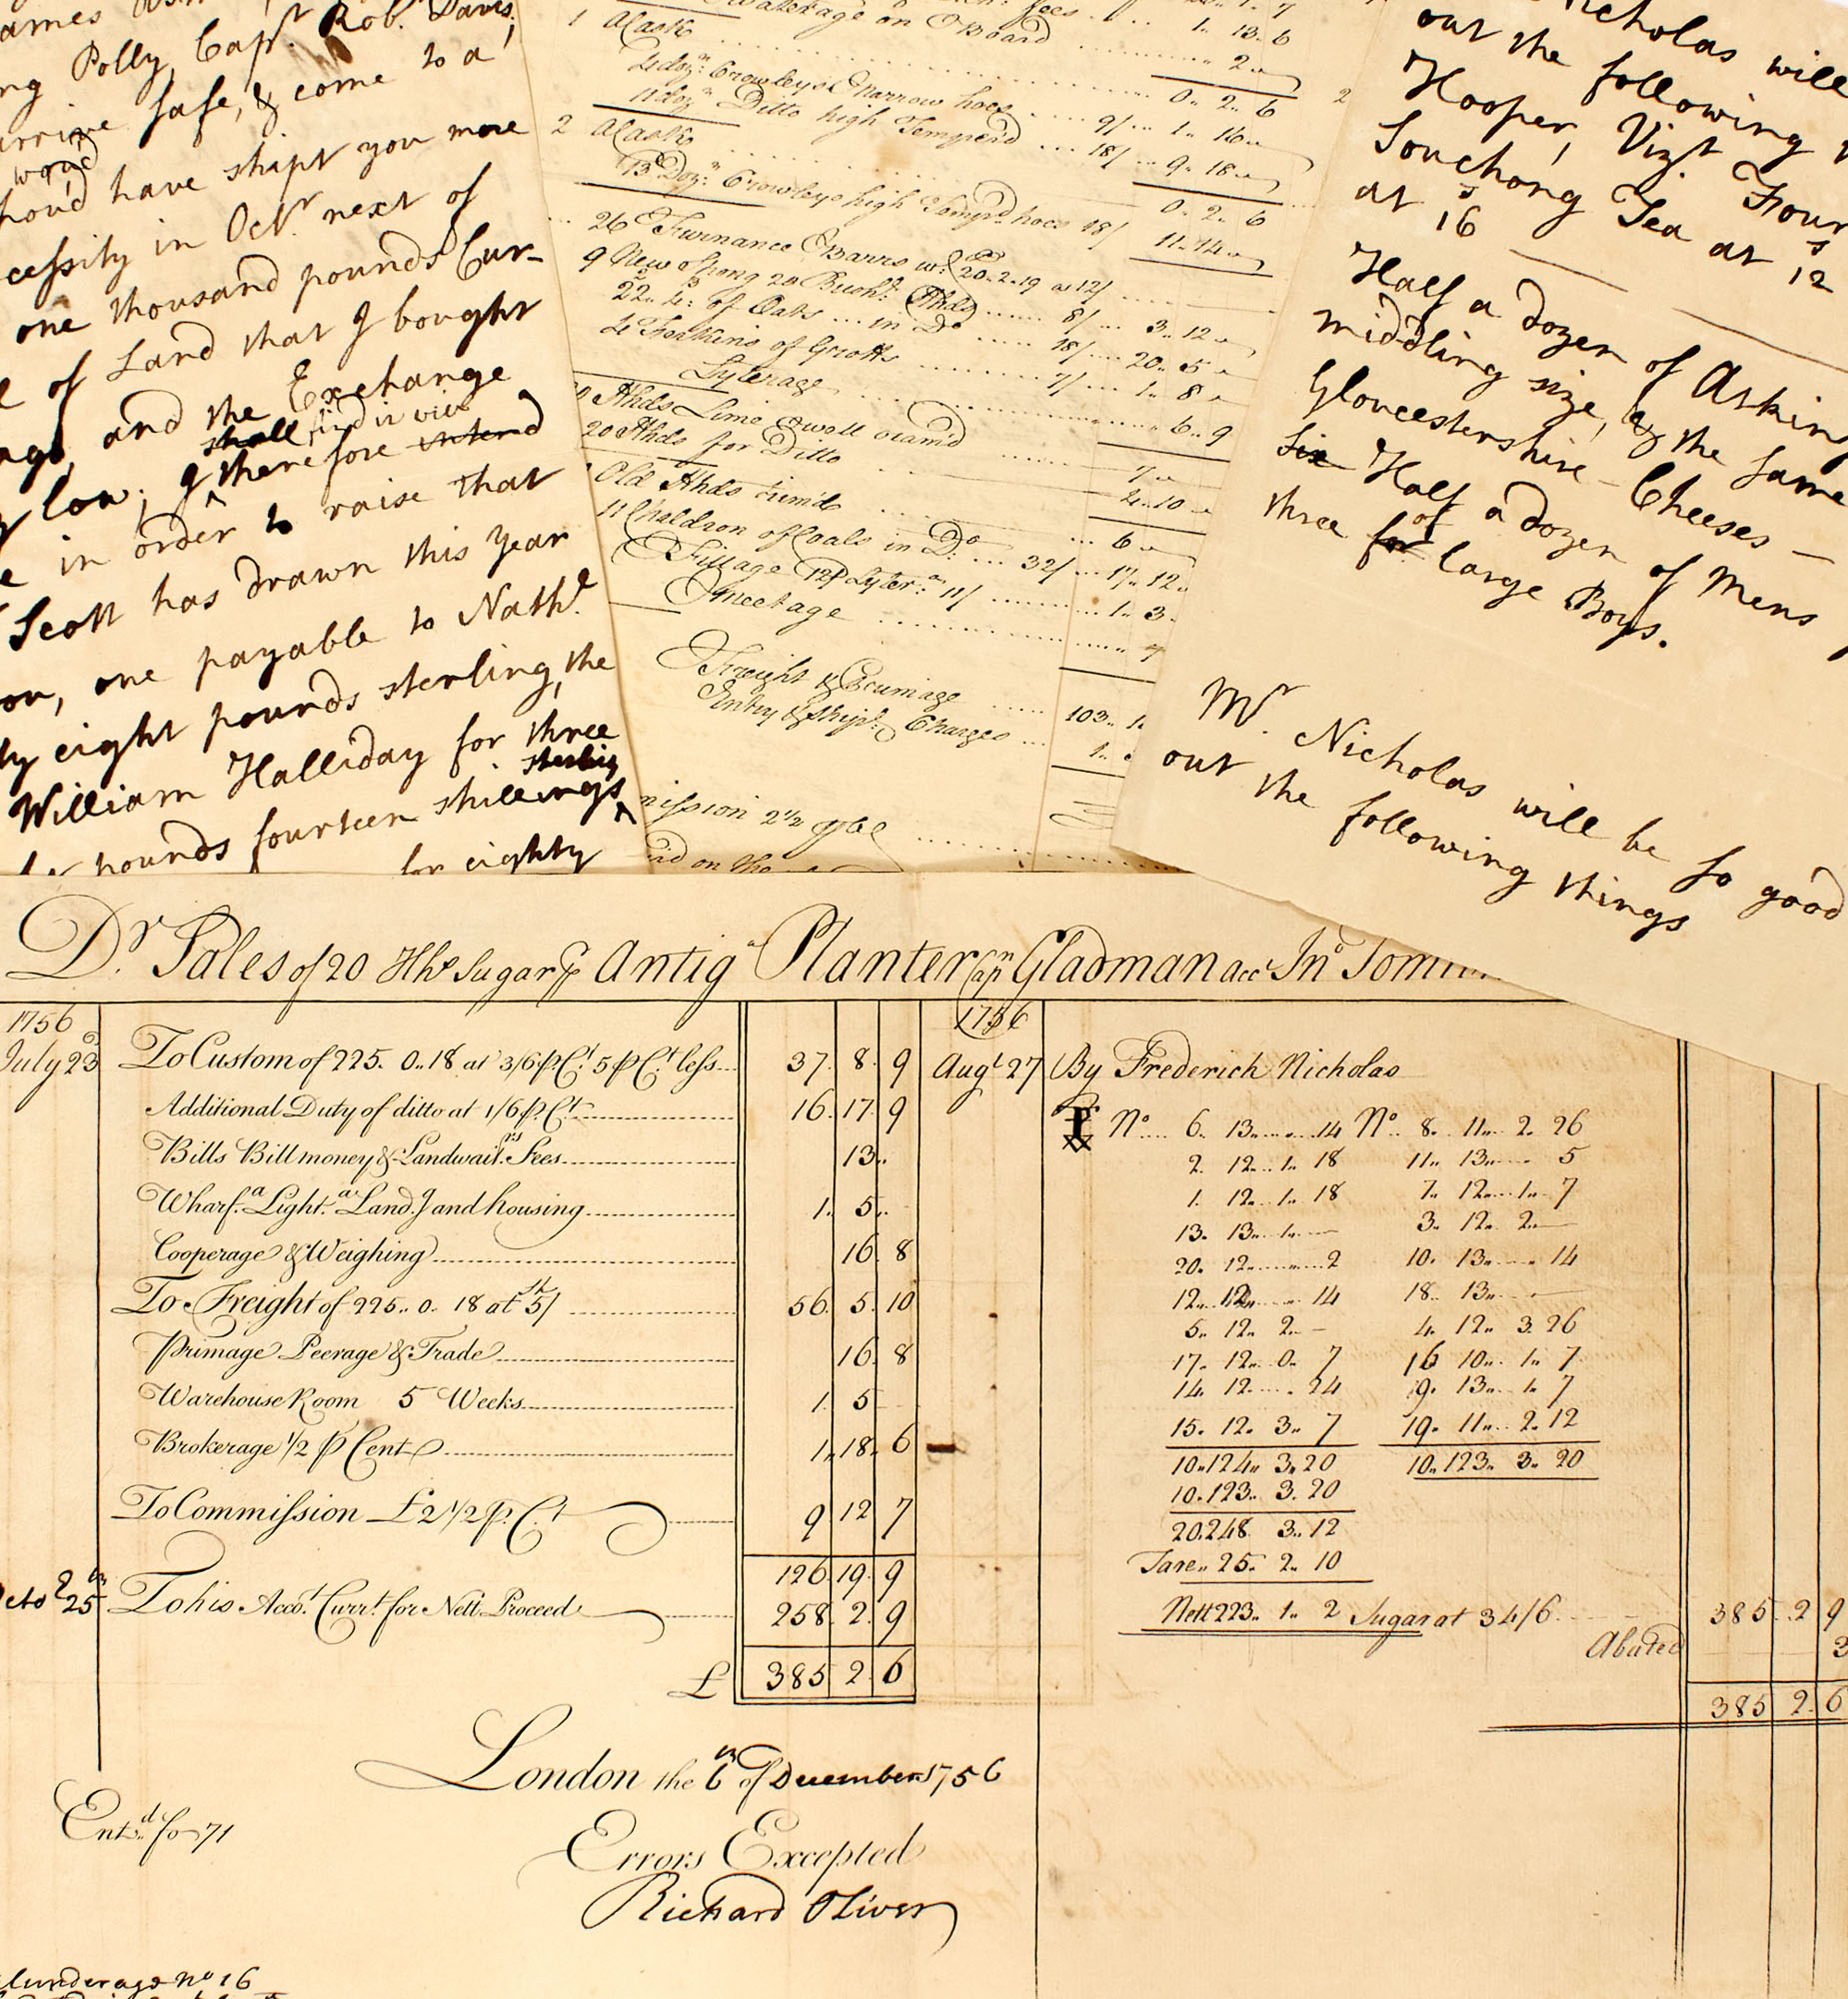 ng Polly, Capt. Robt. Davis,
arrive safe, & come to a
would
have shipt you more
cessity in Octr. next of
one thousand pounds Cur-
of Land that I bought
and the Exchange
shall find it
low; I therefore intend
in order to raise that
Scott has drawn this Year
on, one payable to Nathl.
ty eight pounds sterling, the
William Halliday for three
sterling
pounds fourteen shillings
for eighty
on Board
1.. 13.. 6
1 Cask
2
4 dozn. Crowleys Narrow hoes
0.. 2.. 6
11 dozn. Ditto high Temper'd
9/ 1.. 16
2 Casks
18/ 9.. 18
13 Dozn. Crowleys high Tempd. hoes 18/
0.. 2.. 6
11.. 14
26 Furnance Barrs wt. 20.. 2.. 19 at 12/
9 New strong 20 Bush. Hhds 8/ 3.. 12
of Oats in Do 18/ 20.. 5
4 Feirkins of Grotts 7/ 1.. 8
Lyterage 6.. 9
Hhds Lime well cram'd
20 Hhds for Ditto 4.. 10
Old Hhds trim'd 6
11 Chaldron of Coals in Do 32/ 17.. 12
Fillage 12d Lyter.a 11/ 1.. 3
Meetage
Freight & Primage 103..
Entry & Shipg. Charges 1..
mission 2 1/2 p Ct
on the
Nicholas will
out the following
Hooper, Vizt. Four
Souchong Tea at 12s
at 16s
Half a dozen of
middling size, & the same
Gloucestershire Cheeses —
six Half a dozen of Mens
three for of large Boys.
Mr. Nicholas will be so good
out the following things
Dr. Sales of 20 Hhs Sugar p Antiga Planter Capn Gladman acct Jno
1756
July 23 To Custom of 225.. 0.. 18 at 3/6 p. Ct. 5 p Ct. less 37. 8. 9
Additional Duty of ditto at 1/6 p. Ct. 16. 17. 9
Bills Billmoney & Landwaitrs. Fees 13..
Wharf.a Light.a Land.g and housing 1. 5..
Cooperage & Weighing 16. 8
To Freight of 225.. 0.. 18 at 5/ 56. 5. 10
Primage Peerage & Trade 16. 8
Warehouse Room 5 Weeks 1. 5
Brokerage 1/2 p Cent 1.. 18.. 6
To Commission £2 1/2 p. Ct 9 12 7
126. 19. 9
25th To his Acco.t Curr.t for Nett Proceed 258. 2. 9
£ 385 2. 6
1756
Augt. 27 By Frederich Nicholas
No. 6.. 13.. .. 14 No. 8.. 11.. 2.. 26
2. 12.. 1.. 18 11.. 13.. .. 5
1. 12.. 1.. 18 7.. 12.. 1.. 7
13. 13.. 1.. — 3. 12.. 2.. —
20. 12.. .. 2 10. 13.. .. 14
12.. 12.. .. 14 18. 13.. .. —
5.. 12.. 2.. — 4. 12.. 3. 26
17. 12.. 0.. 7 16 10.. 1.. 7
14. 12.. .. 24 9. 13.. 1.. 7
15. 12. 3.. 7 19. 11.. 2. 12
10.. 124.. 3.. 20 10.. 123.. 3.. 20
10. 123.. 3. 20
20. 248. 3.. 12
Tare.. 25. 2.. 10
Nett 223.. 1.. 2 Sugar at 34/6 385.. 2 9
Abated 3
385 2. 6
London the 6th of December 1756
Errors Excepted
Richard Oliver
Entd. fo 71
No 16